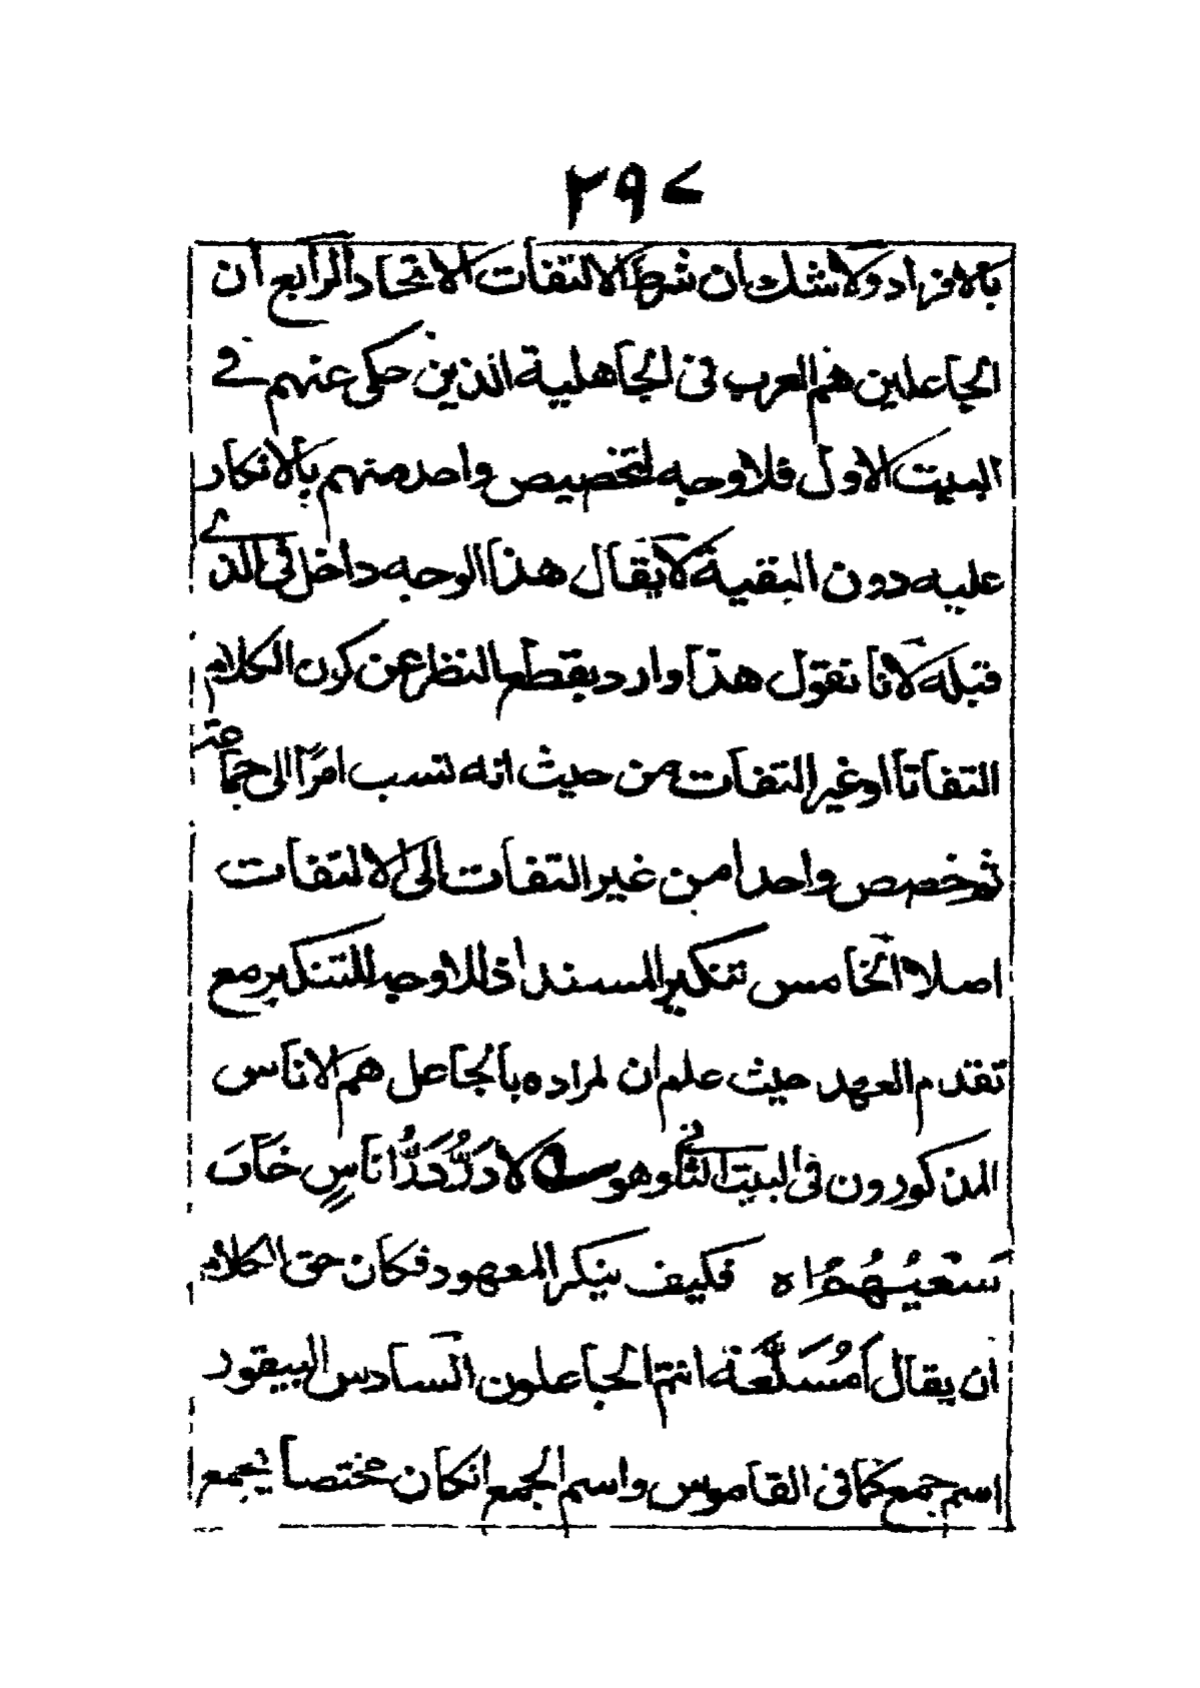 ٢٩٧
بالافراد ولا شك ان شرط الالتفات الاتحاد الرابع ان
الجاعلين هم العرب في الجاهلية الذين حكى عنهم في
البيت الاول فلا وجه لتخصيص واحد منهم بالانكار
عليه دون البقية لا يقال هذا الوجه داخل في الذي
قبله لانا نقول هذا وارد بقطع النظر عن كون الكلام
التفاتا او غير التفات من حيث انه نسب امرًا الى جماعة
ثم خصص واحدا من غير التفات الى الالتفات
اصلا الخامس تنكير المسند اذ لا وجه للتنكير مع
تقدم العهد حيث علم ان مراده بالجاعل هم الاناس
المذكورون في البيت الثاني وهو لا دَرَّ دَرُّ اناسٍ خَابَ
سَعْيُهُمُ اه فكيف ينكر المعهود فكان حق الكلام
ان يقال اَمُسَلَّعَة انتم الجاعلون السادس البيقور
اسم جمع كما في القاموس واسم الجمع انكان مختصا بجمع